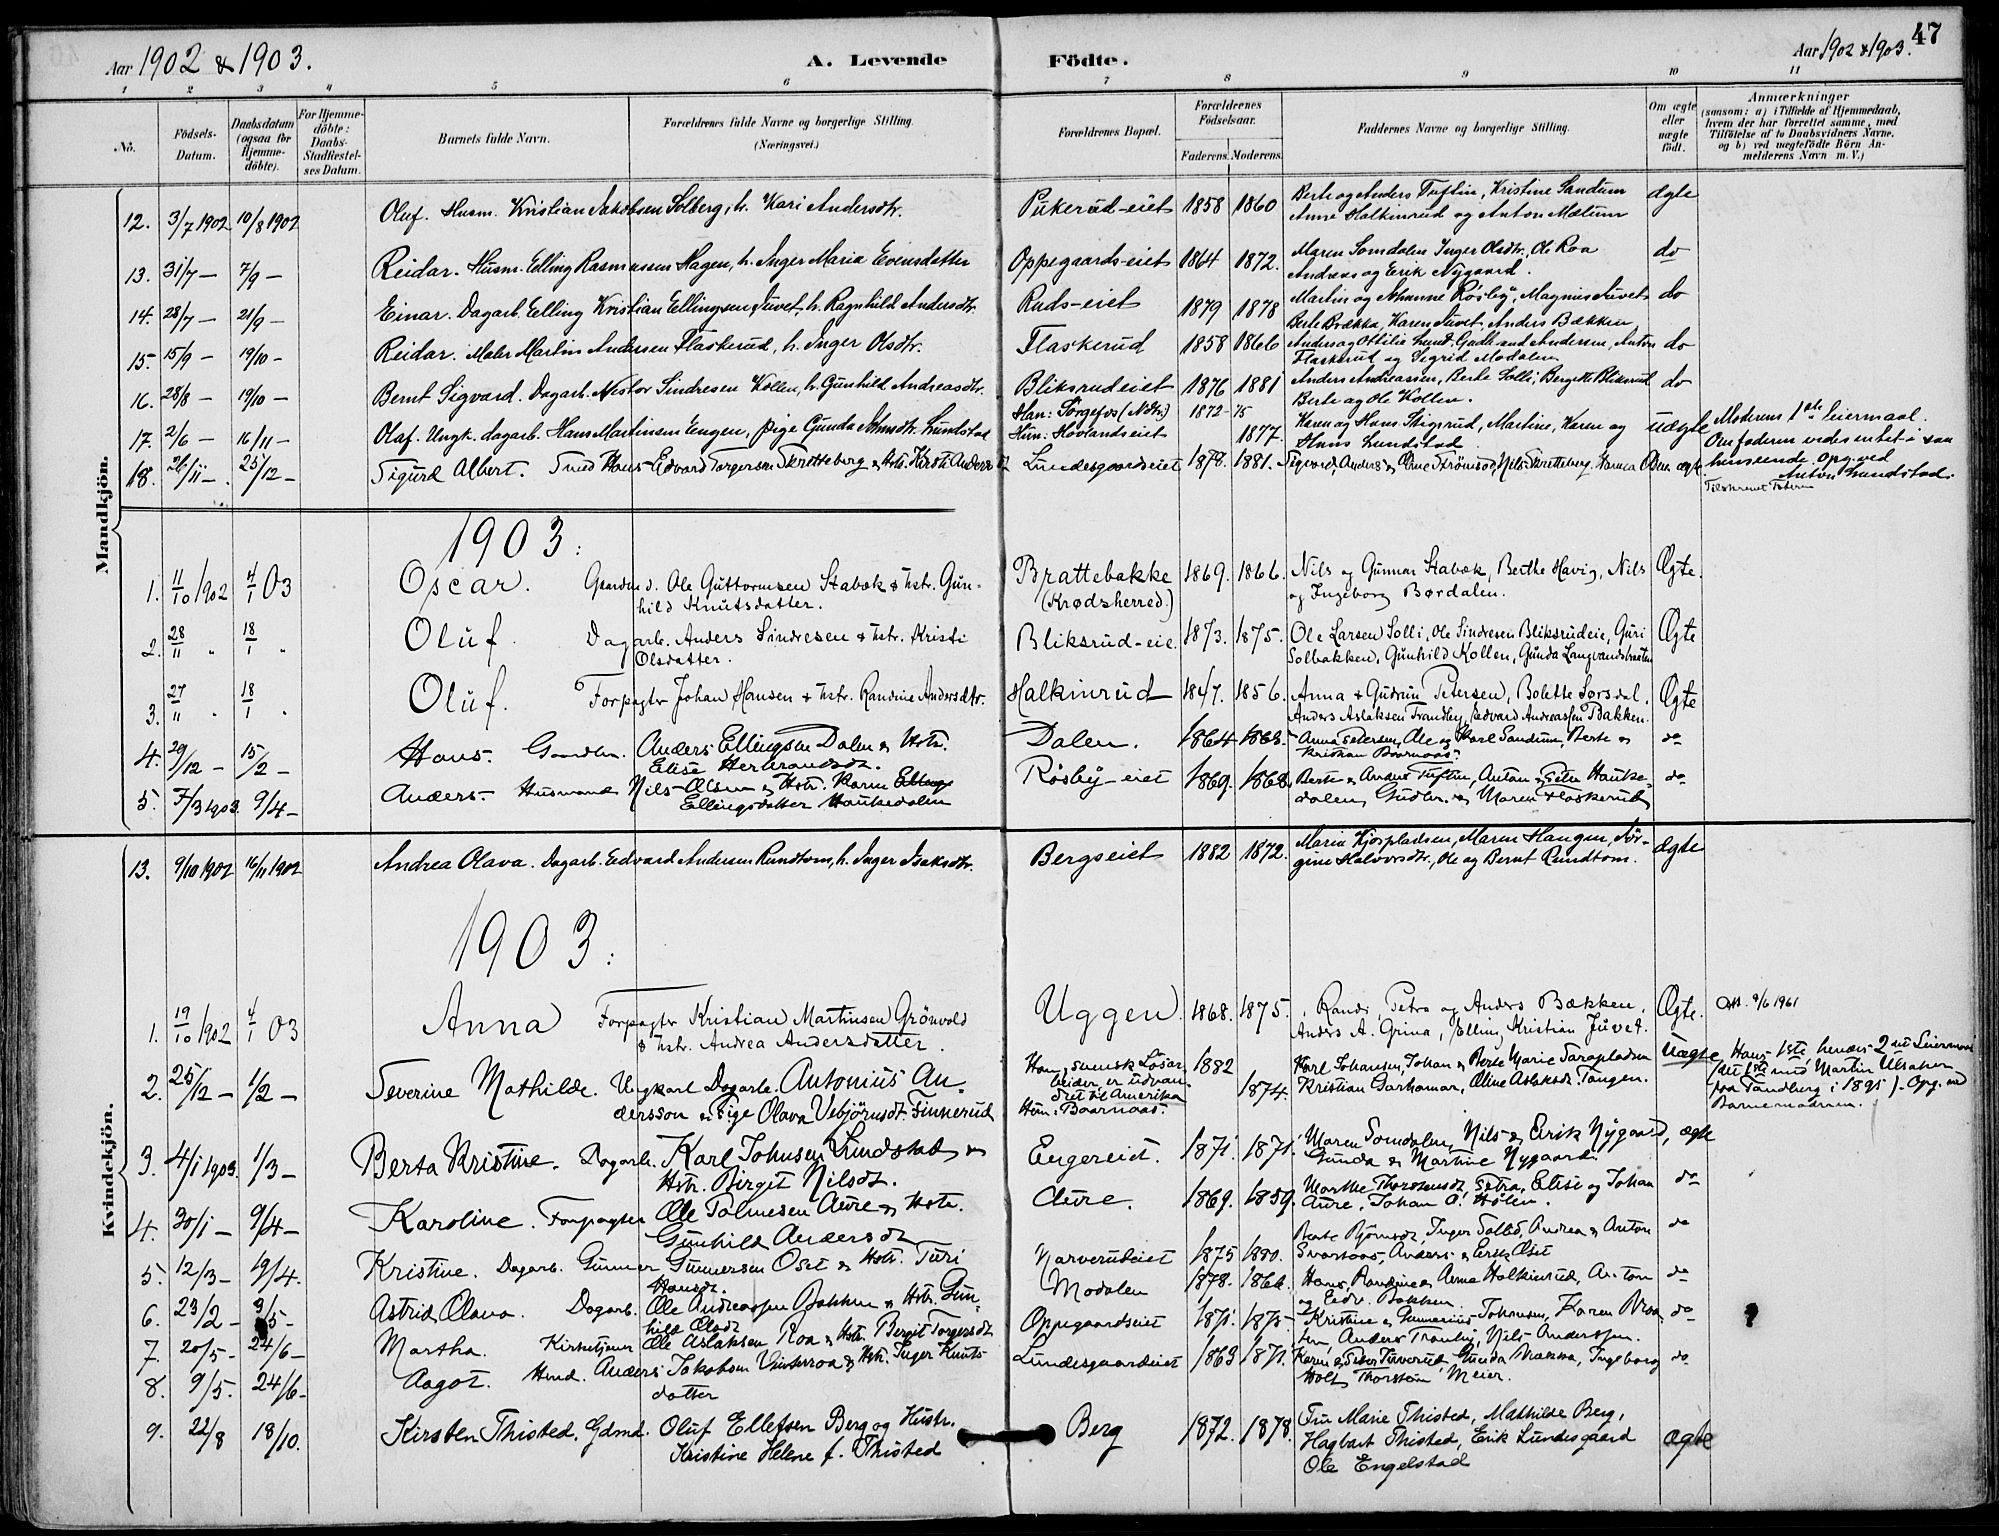 47
Aar 1902 & 1903.
A. Levende Födte.
Aar 1902 & 1903.
1 2 3 4 5 6 7 8 9 10 11
No.
Födsels-Datum.
Daabsdatum (ogsaa for Hjemmedöbte).
For Hjemmedöbte: Daabs-Stadfæstelses Datum.
Barnets fulde Navn.
Forældrenes fulde Navne og borgerlige Stilling. (Næringsvei.)
Forældrenes Bopæl.
Forældrenes Födselsaar.
Faderens. Moderens.
Faddernes Navne og borgerlige Stilling.
Om ægte eller uægte födt.
Anmærkninger
(saasom: a) i Tilfælde af Hjemmedaab, hvem der har forrettet samme, med Tilföielse af to Daabsvidners Navne. og b) ved uægtefödte Börn Anmelderens Navn m. V.)
Mandkjön.
12. 3/7 1902 10/8 1902 Oluf. Husm. Kristian Jakobsen Solberg, h. Kari Andersdtr. Pukerud-eiet 1858 1860 Berte og Anders Tuftin, Kristine Sandum
Anne Halkinrud og Anton Mælum ægte
13. 31/7 — 7/9 — Reidar. Husm. Edling Rasmussen Hagen, h. Inger Maria Evensdatter Oppegaards-eiet 1864 1872. Maren Somdalen Inger Olsdtr., Ole Roa
Andreas og Erik Nygaard. do
14. 28/7 — 21/9 — Einar. Dagarb. Elling Kristian Ellingsen Juvet, h. Ragnhild Andersdtr. Ruds-eiet 1879 1878 Martin og Johanne Rösby, Magnus Juvet
Berte Brækka, Karen Juvet, Anders Bækken do
15. 15/9 — 19/10 — Reidar. Maler Martin Andersen Flaskerud, h. Inger Olsdtr. Flaskerud 1858 1866 Anders og Ottilia Lund, Gudbrand Andersen, Anton
Flaskerud og Sigrid Modalen do
16. 28/8 — 19/10 — Bernt Sigvard. Dagarb. Nestor Sindresen Kollen, h. Gunhild Andreasdtr. Bliksrudeiet 1876 1881 Anders Andreassen, Berte Solli, Bergette Bliksrud
Berte og Ole Kollen. do
17. 2/6 — 16/11 — Olaf. Ungk. dagarb. Hans Martinsen Engen, pige Gunda Johnsdtr. Lundstad Han: Sörgefos (Ndtr.) 1872-75
Hun: Hovlandseiet 1877. Karen og Hans Stigrud, Martine, Karen og
Hans Lundstad uægte Moderens 1ste leiermaal.
Om faderen vedes intet i saa
henseende Opg. ved
Anton Lundstad.
18. 26/11 —. 25/12 — Sigurd Albert. Smed Hans Edvard Torgersen Skretteberg & Hstr. Kirsti Andersdt Lundesgaardeiet 1878. 1881. Sigvard, Anders & Oline Strömsod, Nils Skretteberg, Hanna Olsen ægte
1903:
1. 11/10 1902 4/1 03 Oscar. Gaardmd. Ole Guttormsen Stabæk & hstr. Gun-
hild Knutsdatter. Brattebakke
(Krødsherred.) 1869. 1866. Nils og Gunnar Stabæk, Berthe Havig, Nils
og Ingeborg Børdalen. Ægte.
2. 28/11 " 18/1 " Oluf. Dagarb. Anders Sindresen & hstr. Kristi
Olsdatter. Bliksrud-eie 1873. 1875. Ole Larsen Solli, Ole Sindresen Bliksrudeie, Guri
Solbakken, Gunhild Kollen, Gunda Langvandsbraaten Ægte
3. 27/11 " 18/1 " Oluf. Forpagter Johan Hansen & hstr. Randine Andersdtr. Halkinrud 1847. 1856. Anna & Gudrun Petersen, Bolette Sørsdal,
Anders Aslaksen Trandby, Edvard Andreassen Bakken. Ægte
4. 29/12 — 15/2 — Hans. Gaardbr. Anders Ellingsen Dalen & Hstr.
Elise Herbrandsdt. Dalen. 1864 1868. Anna Petersen, Ole og Karl Sandum, Berte &
Kristian Baarnaas. do
5. 7/3 1903. 9/4 — Anders. Husmand Nils Olsen & Hstr. Karen
Ellingsdatter Haukedalen Rösby-eiet 1869. 1868 Berte & Anders Tuftin, Anton & Peter Hauke-
dalen, Gudbr. & Maren Flaskerud do
Kvindekjön.
13. 9/10 1902 16/11 1902 Andrea Olava. Dagarb. Edvard Andersen Rundtom, h. Inger Isaksdtr. Bergseiet 1882 1872. Maria Kjospladsen, Maren Haugen, Jör-
gine Halvorsdtr., Ole og Bernt Rundtom. ægte
1903:
1. 19/10 1902 4/1 03 Anna Forpagter Kristian Martinsen Grönvold
& hstr. Andrea Andersdatter. Uggen. 1868. 1875. Randi, Petra og Anders Bækken,
Anders A. Grina, Elling Kristian Juvet. Ægte. 9/6 1961
2. 25/12 — 1/2 — Severine Mathilde. Ungkarl Dagarb. Antonius An-
dersson & Pige Olava Vebjörnsdt. Finnerud Han svensk Lösar-
beider, er udvan-
dret til Amerika
Hun: Baarnaas. 1882
1874. Karl Johansen, Johan & Berte Marie Taraldsen
Kristian Garhamar, Oline Aslaksdt. Tangen. Uægte Hans 1ste hendes 2det Leiermaal
(det 1ste med Martin Ulsaker
paa Tandberg i 1895). Opg. ved
Barnemoderen.
3. 4/1 1903. 1/3 — Berta Kristine. Dagarb. Karl Johnsen Lundstad &
Hstr. Birget Nilsdt. Engereiet. 1871. 1871. Maren Somdalen, Nils & Erik Nygaard,
Gunda & Martine Nygaard. ægte
4. 30/1 — 9/4 — Karoline. Forpagter Ole Palmesen Aure & Hstr.
Gunhild Andersdt Aure. 1869. 1859. Marthe Thorstensdt, Petra, Elise og Johan
Aure, Johan A. Hölen. do
5. 12/3 — 19/4. Kristine. Dagarb. Gunner Gunnersen Oset & Hstr. Turi
Hansdt. Narverudeiet 1875 1880. Berte Björnsdt, Inger Sollid, Andrea & Anton
Svarsaas, Anders & Erik Oset do
6. 23/2 — 3/5 — Astrid Olava. Dagarb. Ole Andreassen Bakken & Hstr. Gun-
hild Olsdt Modalen 1878. 1866. Hans, Randine & Anna Halkinrud, Anton
og Edv. Bakken. do
7. 20/5 — 24/6 — Martha. Kirketjener Ole Aslaksen Roa & Hstr. Bergit Torgersdt Oppegaardseiet 1871. 1875 Kristine & Gunnerius Johansen, Karen Braa-
ten, Anders Tranby, Nils Anderssen. do
8. 9/5. 24/6 — Aagot. Hmd. Anders Jakobsen Vinterroa & Hstr. Inger Knuts-
datter Lundesgaardeiet 1863 1871. Karen & Peter Tuverud, Gunda Nakka, Ingeborg
Holt, Thorstein Meier. do
9. 22/8 18/10. Kirsten Thisted. Gdmd. Oluf Ellefsen Berg og Hustr.
Kristine Helene f. Thisted Berg 1872. 1878. Fru Marie Thisted, Mathilde Berg,
Hagbart Thisted, Erik Lundesgaard
Ole Engelstad ægte